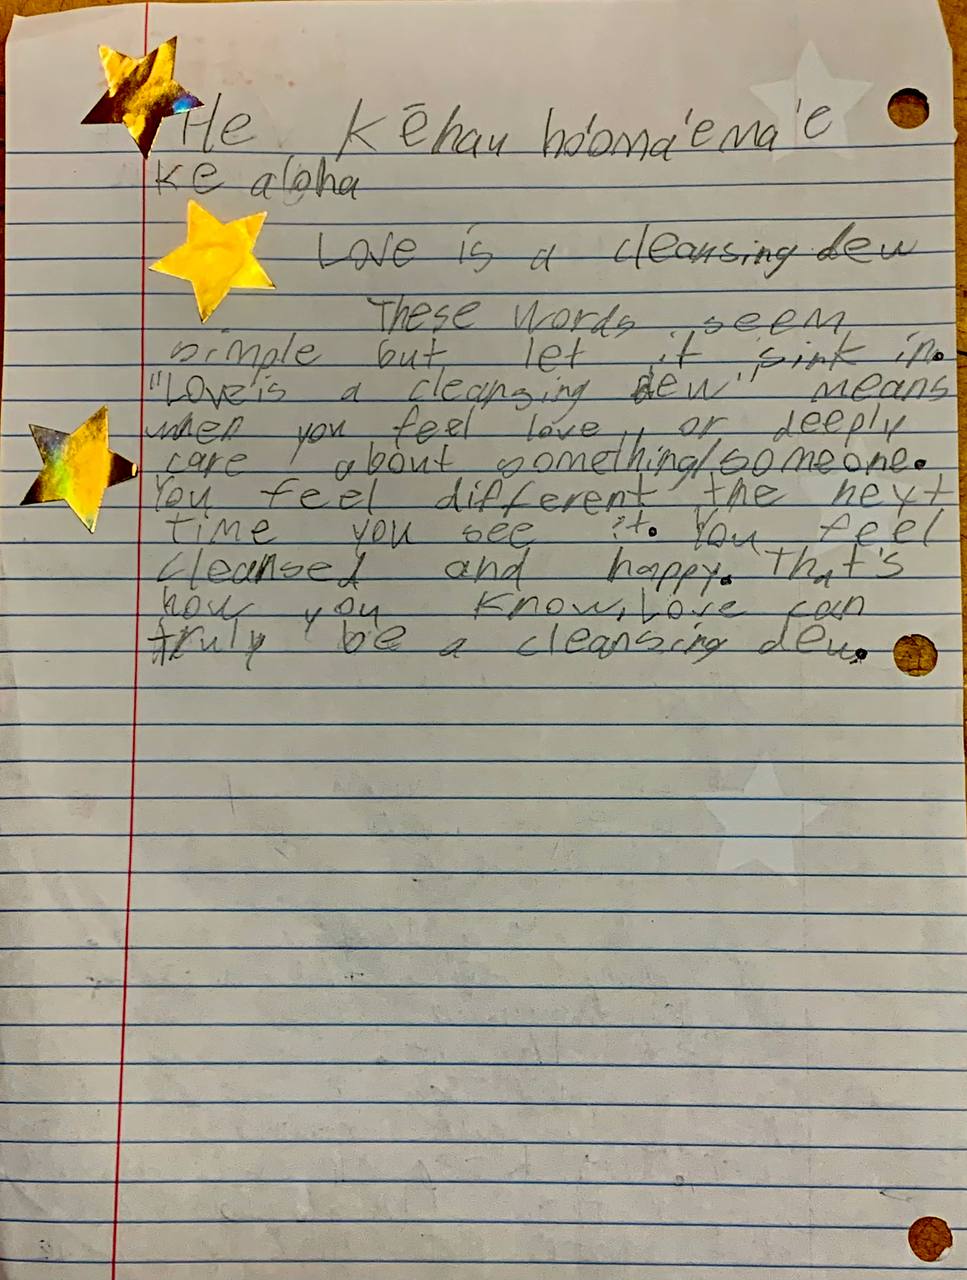 He Kēhau hó'omá'ema'e
ke aloha
Love is a cleansing dew
These words seem
simple but let it sink in.
"Love is a cleansing dew" means
when you feel love, or deeply
care about something/someone.
You feel different the next
time you see it. You feel
cleansed and happy. That's
how you know, Love can
truly be a cleansing dew.